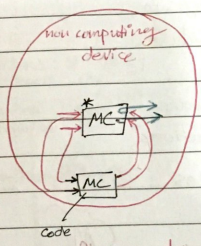 non computing
device
*
MC
MC
code